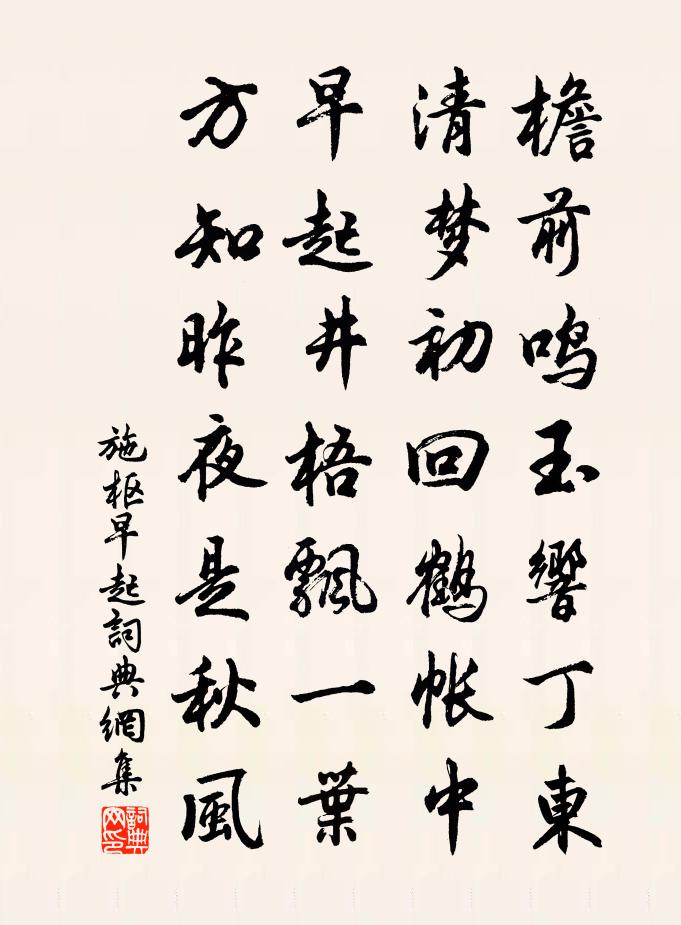 檐前鸣玉響丁東
清梦初回鶴帐中
早起井梧飄一葉
方知昨夜是秋風
施枢早起詞典網集
詞典网印